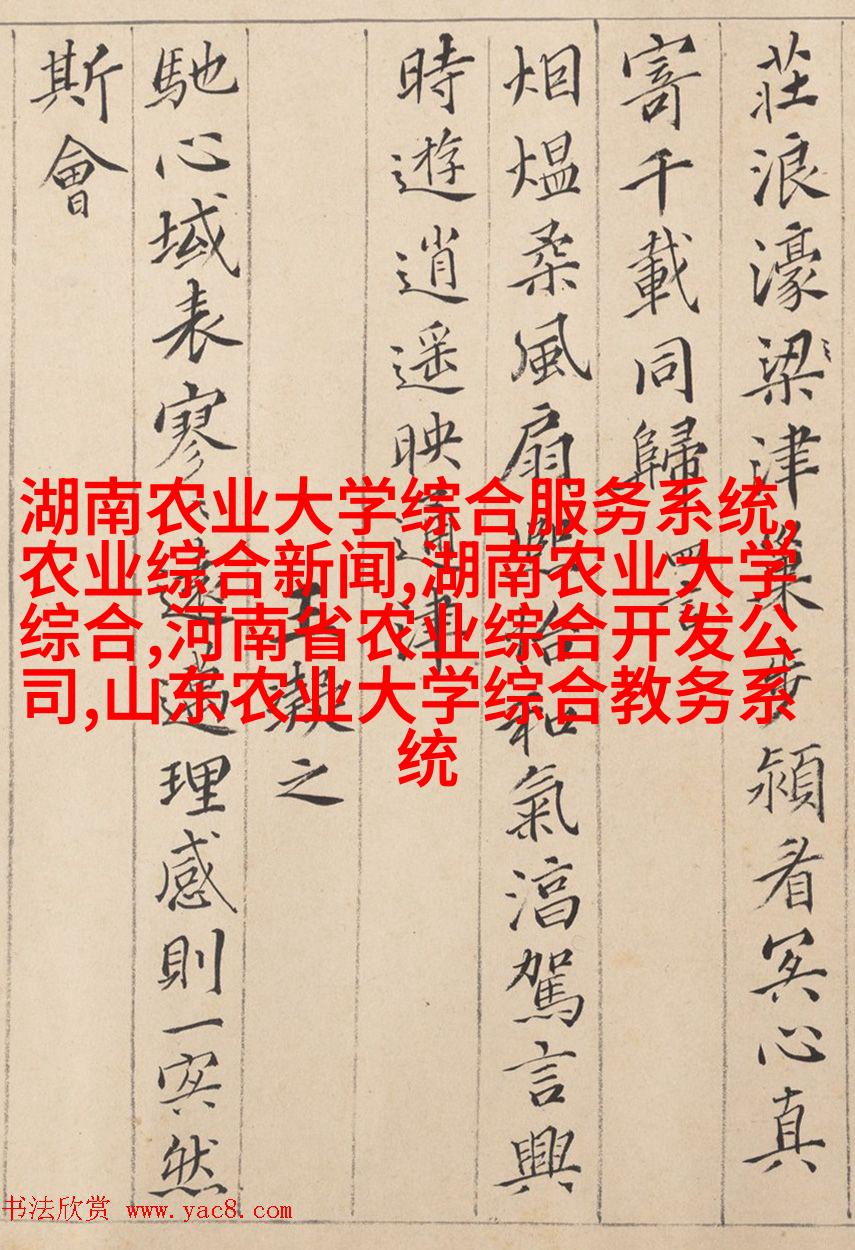 莊浪濠梁津巢步潁眉冥心真
寄千載同歸 四言
烟熅柔風扇熙怡和氣淳駕言興
時遊逍遥映通津
王凝之
馳心域表寥〻遠邁理感則一冥然
斯會
湖南农业大学综合服务系统,
农业综合新闻,湖南农业大学
综合,河南省农业综合开发公
司,山东农业大学综合教务系
统
书法欣赏 www.yac8.com